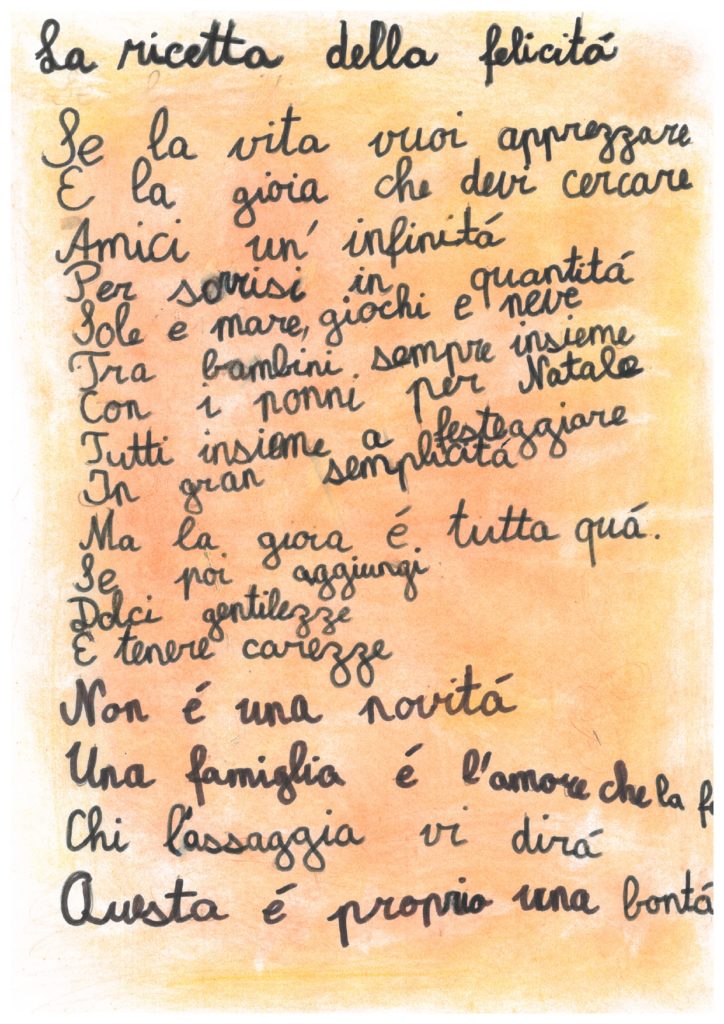 La ricetta della felicitá
Se la vita vuoi apprezzare
E la gioia che devi cercare
Amici un' infinitá
Per sorrisi in quantitá
Sole e mare, giochi e neve
Tra bambini sempre insieme
Con i nonni per Natale
Tutti insieme a festeggiare
In gran semplicitá
Ma la gioia é tutta quá.
Se poi aggiungi
Dolci gentilezze
E tenere carezze
Non é una novitá
Una famiglia é l'amore che la
Chi l'assaggia vi dirá
Questa é proprio una bontá